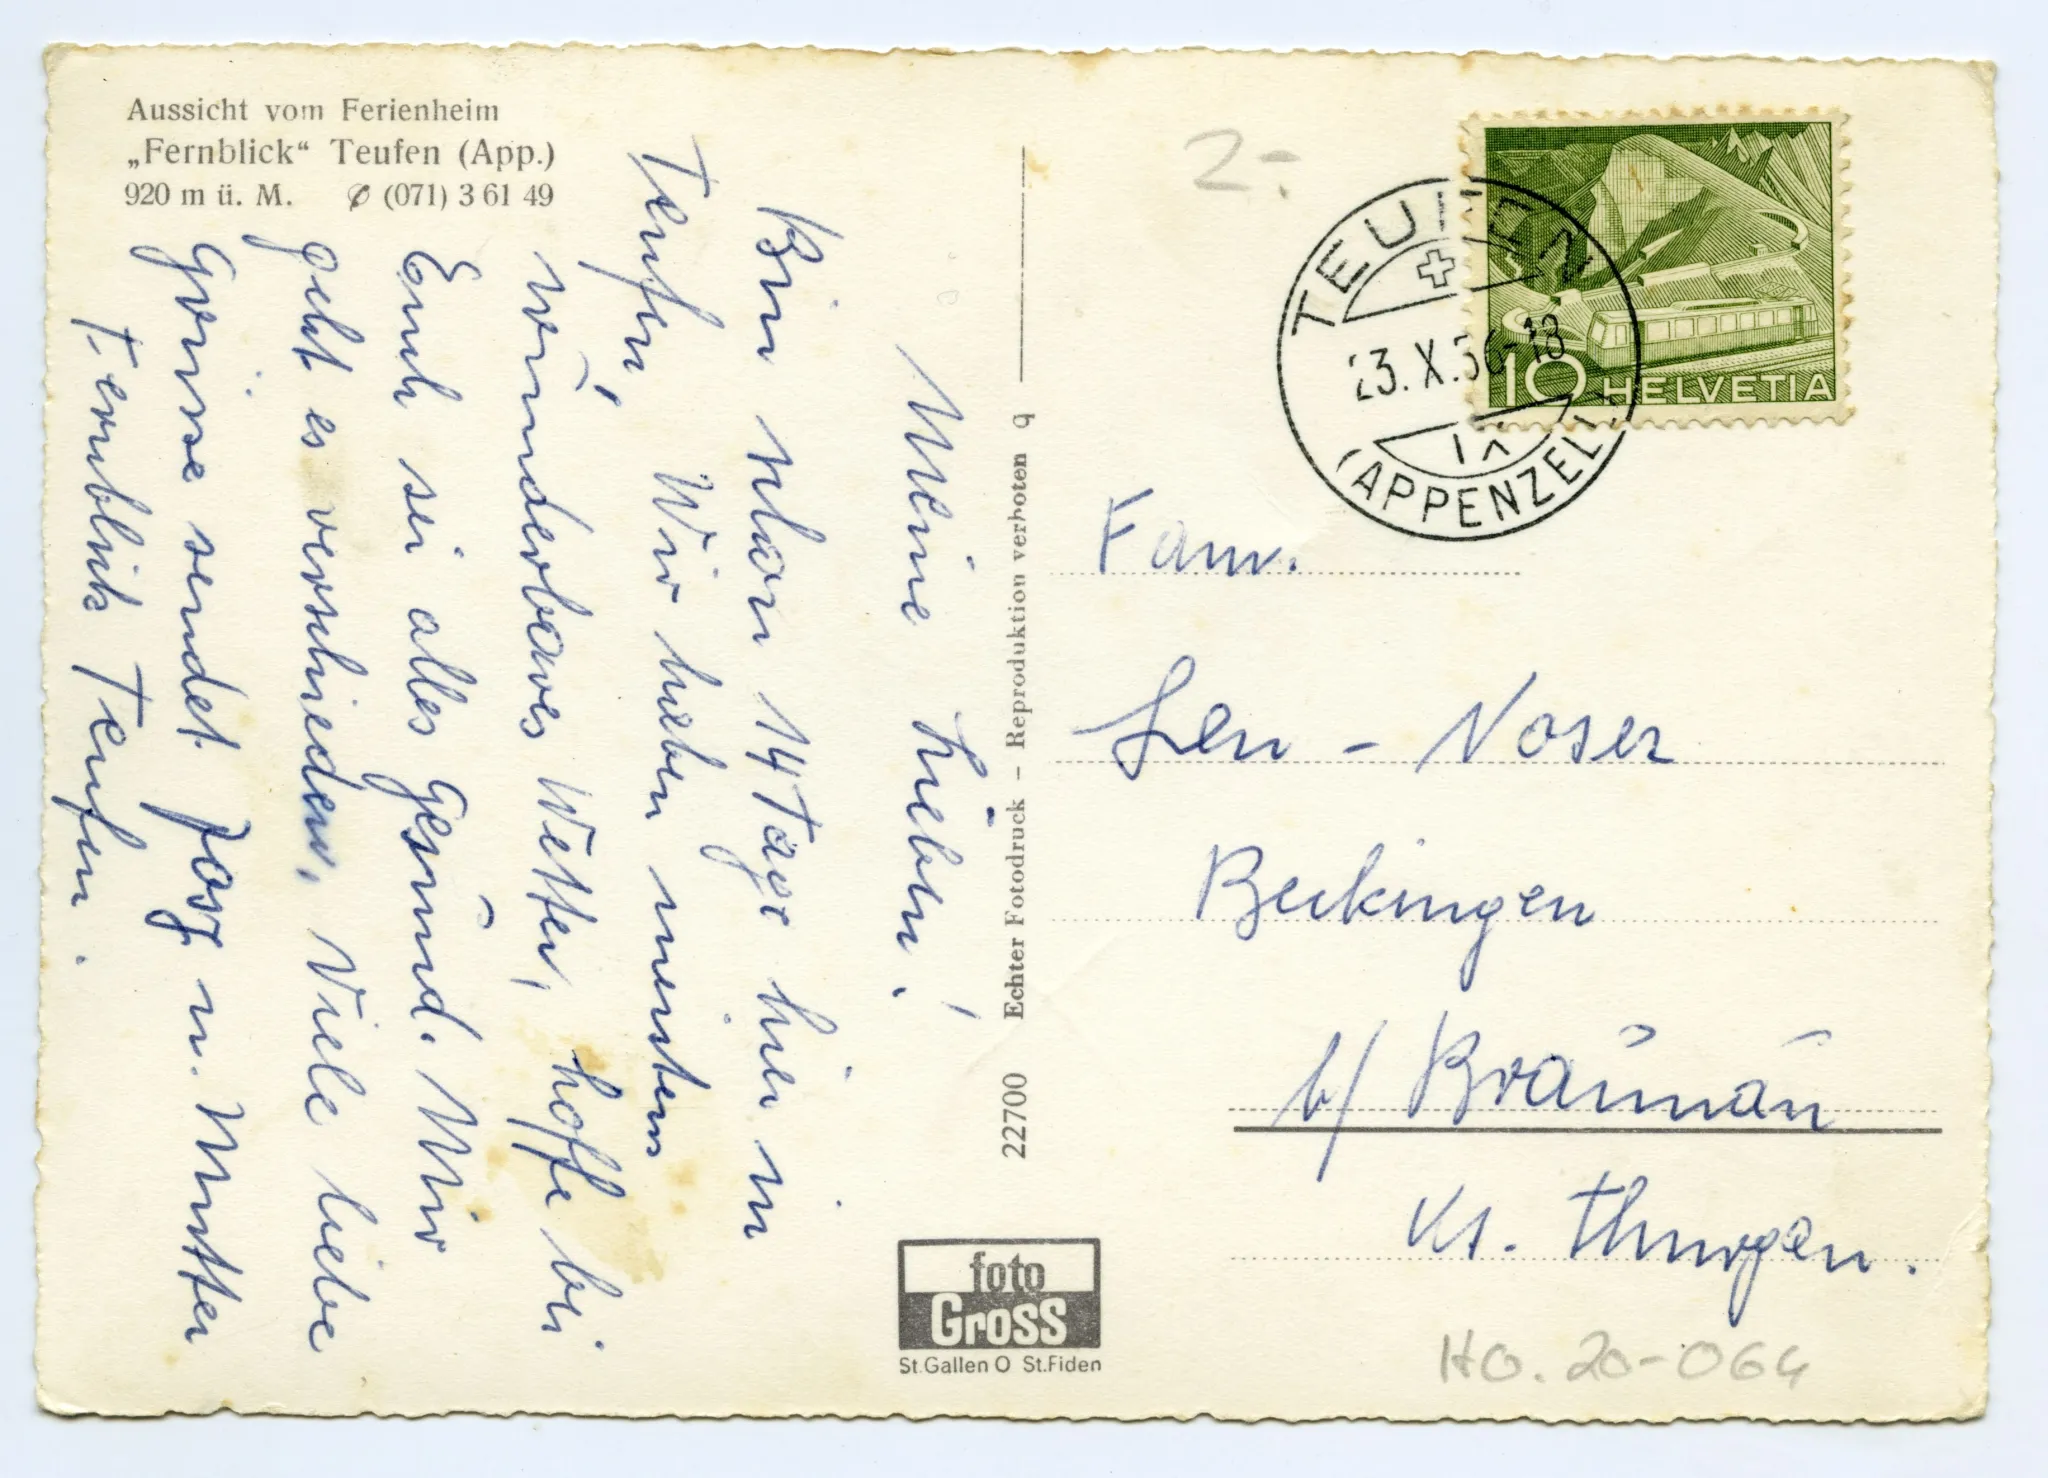 Aussicht vom Ferienheim
„Fernblick“ Teufen (App.)
920 m ü. M. ✆ (071) 3 61 49
Meine Lieben!
Bin schon 14 Tage hier in
Teufen, Wir haben meistens
wünderbares Wetter, hoffe bei
Euch sei alles Gesünd. Mir
geht es verschieden, Viele liebe
Grüsse sendet Josy u. Mutter
Fernblick Teufen.
22700 Echter Fotodruck – Reproduktion verboten q
foto
Gross
St.Gallen O St.Fiden
2.-
TEUFEN
23.X.56-18
(APPENZELL)
10 HELVETIA
Fam.
Len - Noser
Beckingen
b/ Braünaü
Kt. Thurgau.
HO. 20-064